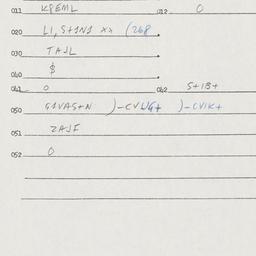 011 KPEML 012 0
020 LI, S+1N1 xx (268
030 TAJL
040 $
041 0 042 S+1B+
050 G1VAS+N )-CVUG+ )-CVIK+
051 ZAJF
052 0